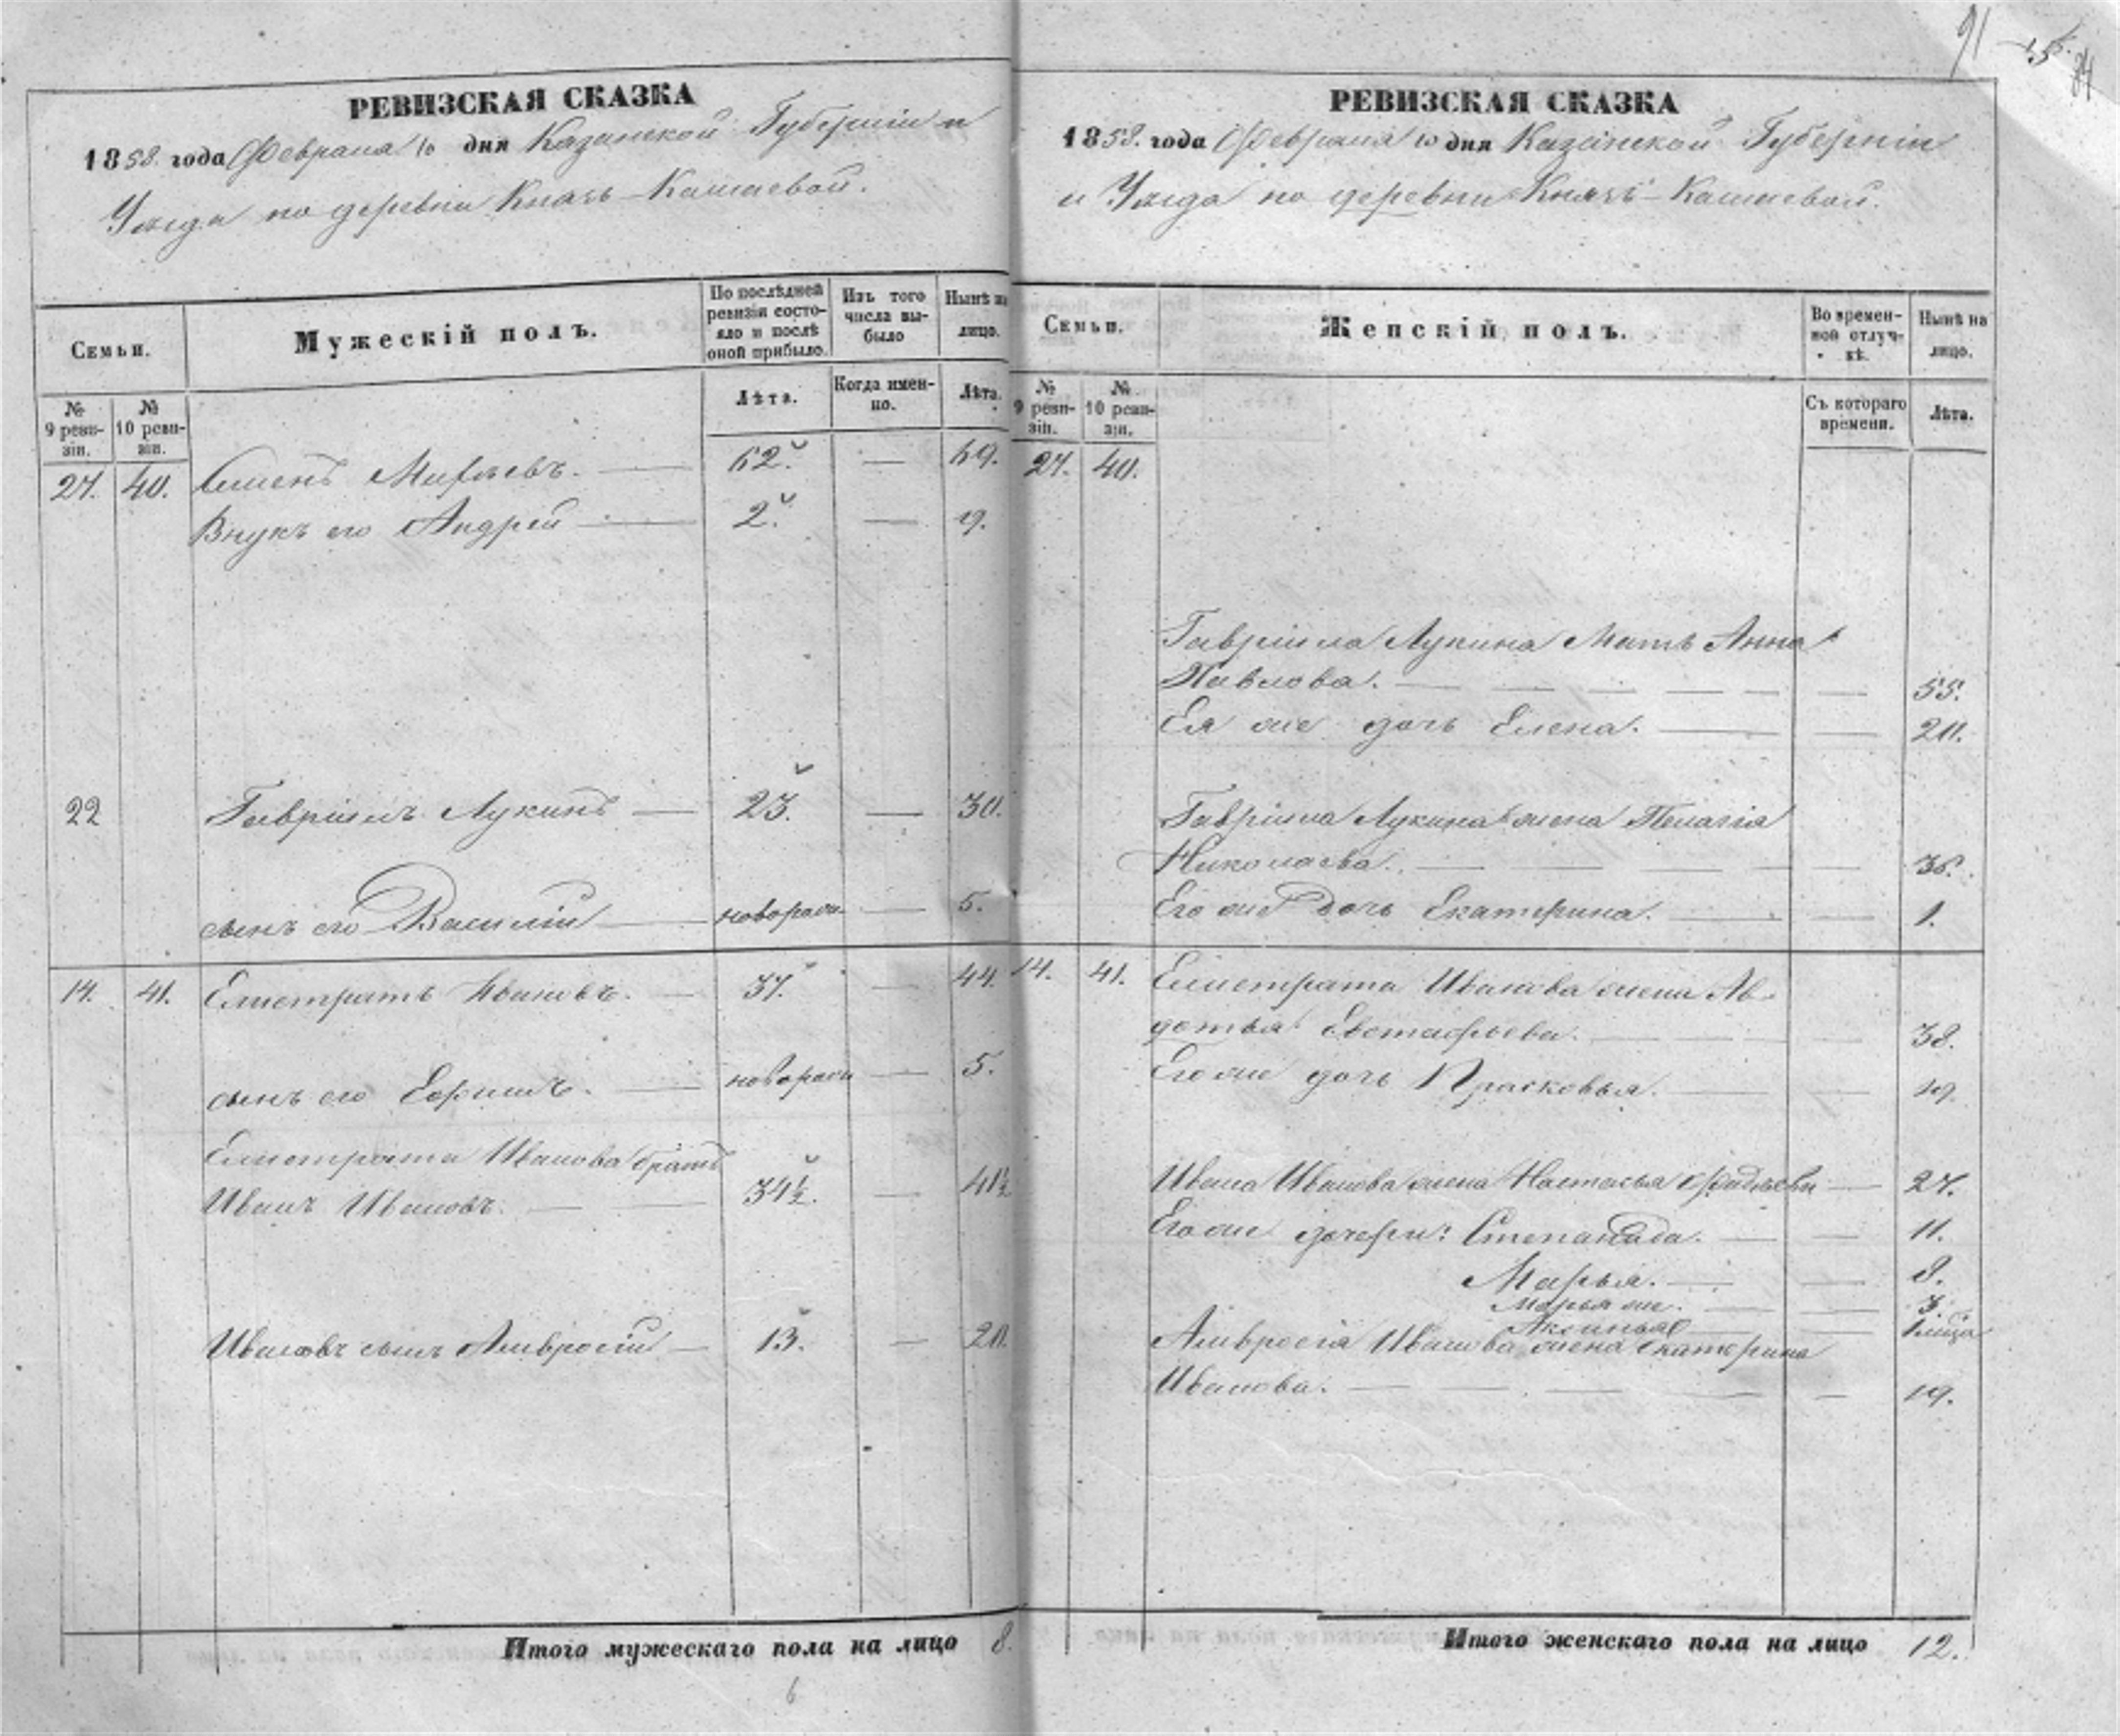 91
РЕВИЗСКАЯ СКАЗКА
1858. года Февраля 10 дня Казанской Губернiи и
Уѣзда по деревни Князь-Камаевой.
Семьи.
Мужескiй полъ.
По послѣдней ревизiи состояло и послѣ оной прибыло.
Изъ того числа выбыло
Нынѣ на лицо.
№ 9 ревизiи.
№ 10 ревизiи.
Лѣта.
Когда именно.
Лѣта.
27. 40. Семенъ Михѣевъ. — 62. — 69.
Внукъ его Андрей — 2. — 9.
22 Гаврiилъ Лукинъ — 23. — 30.
сынъ его Василiй — новорожд — 5.
14. 41. Елистратъ Ивановъ. — 37. — 44.
сынъ его Ефимъ. — новорожд — 5.
Елистрата Иванова братъ
Иванъ Ивановъ. — 34½. — 41½
Ивановъ сынъ Амвросiй — 13. — 20.
Итого мужескаго пола на лицо 8.
6
РЕВИЗСКАЯ СКАЗКА
1858. года Февраля 10 дня Казанской Губернiи
и Уѣзда по деревни Князь-Камаевой.
Семьи.
Женскiй полъ.
Во временной отлучкѣ.
Нынѣ на лицо.
№ 9 ревизiи.
№ 10 ревизiи.
Съ котораго времени.
Лѣта.
27. 40.
Гаврiила Лукина Мать Анна
Павлова. — — 55.
Ея же дочь Елена. — — 20.
Гаврiила Лукина жена Пелагiя
Николаева. — — 36.
Его же дочь Екатерина. — — 1.
14. 41. Елистрата Иванова жена Ав-
дотья Евстафьева. — — 38.
Его же дочь Прасковья. — — 19.
Ивана Иванова жена Настасья — 27.
Его же дочери: Степанида. — — 11.
Марья. — — 8.
Марья же. — — 3.
Аксинья — —
Амвросiя Иванова жена Екатерина
Иванова. — — 19.
Итого женскаго пола на лицо 12.